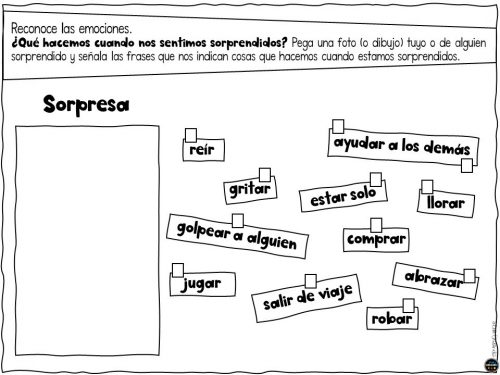 Reconoce las emociones.
¿Qué hacemos cuando nos sentimos sorprendidos? Pega una foto (o dibujo) tuyo o de alguien
sorprendido y señala las frases que nos indican cosas que hacemos cuando estamos sorprendidos.
Sorpresa
reír
ayudar a los demás
gritar
estar solo
llorar
golpear a alguien
comprar
jugar
salir de viaje
abrazar
robar